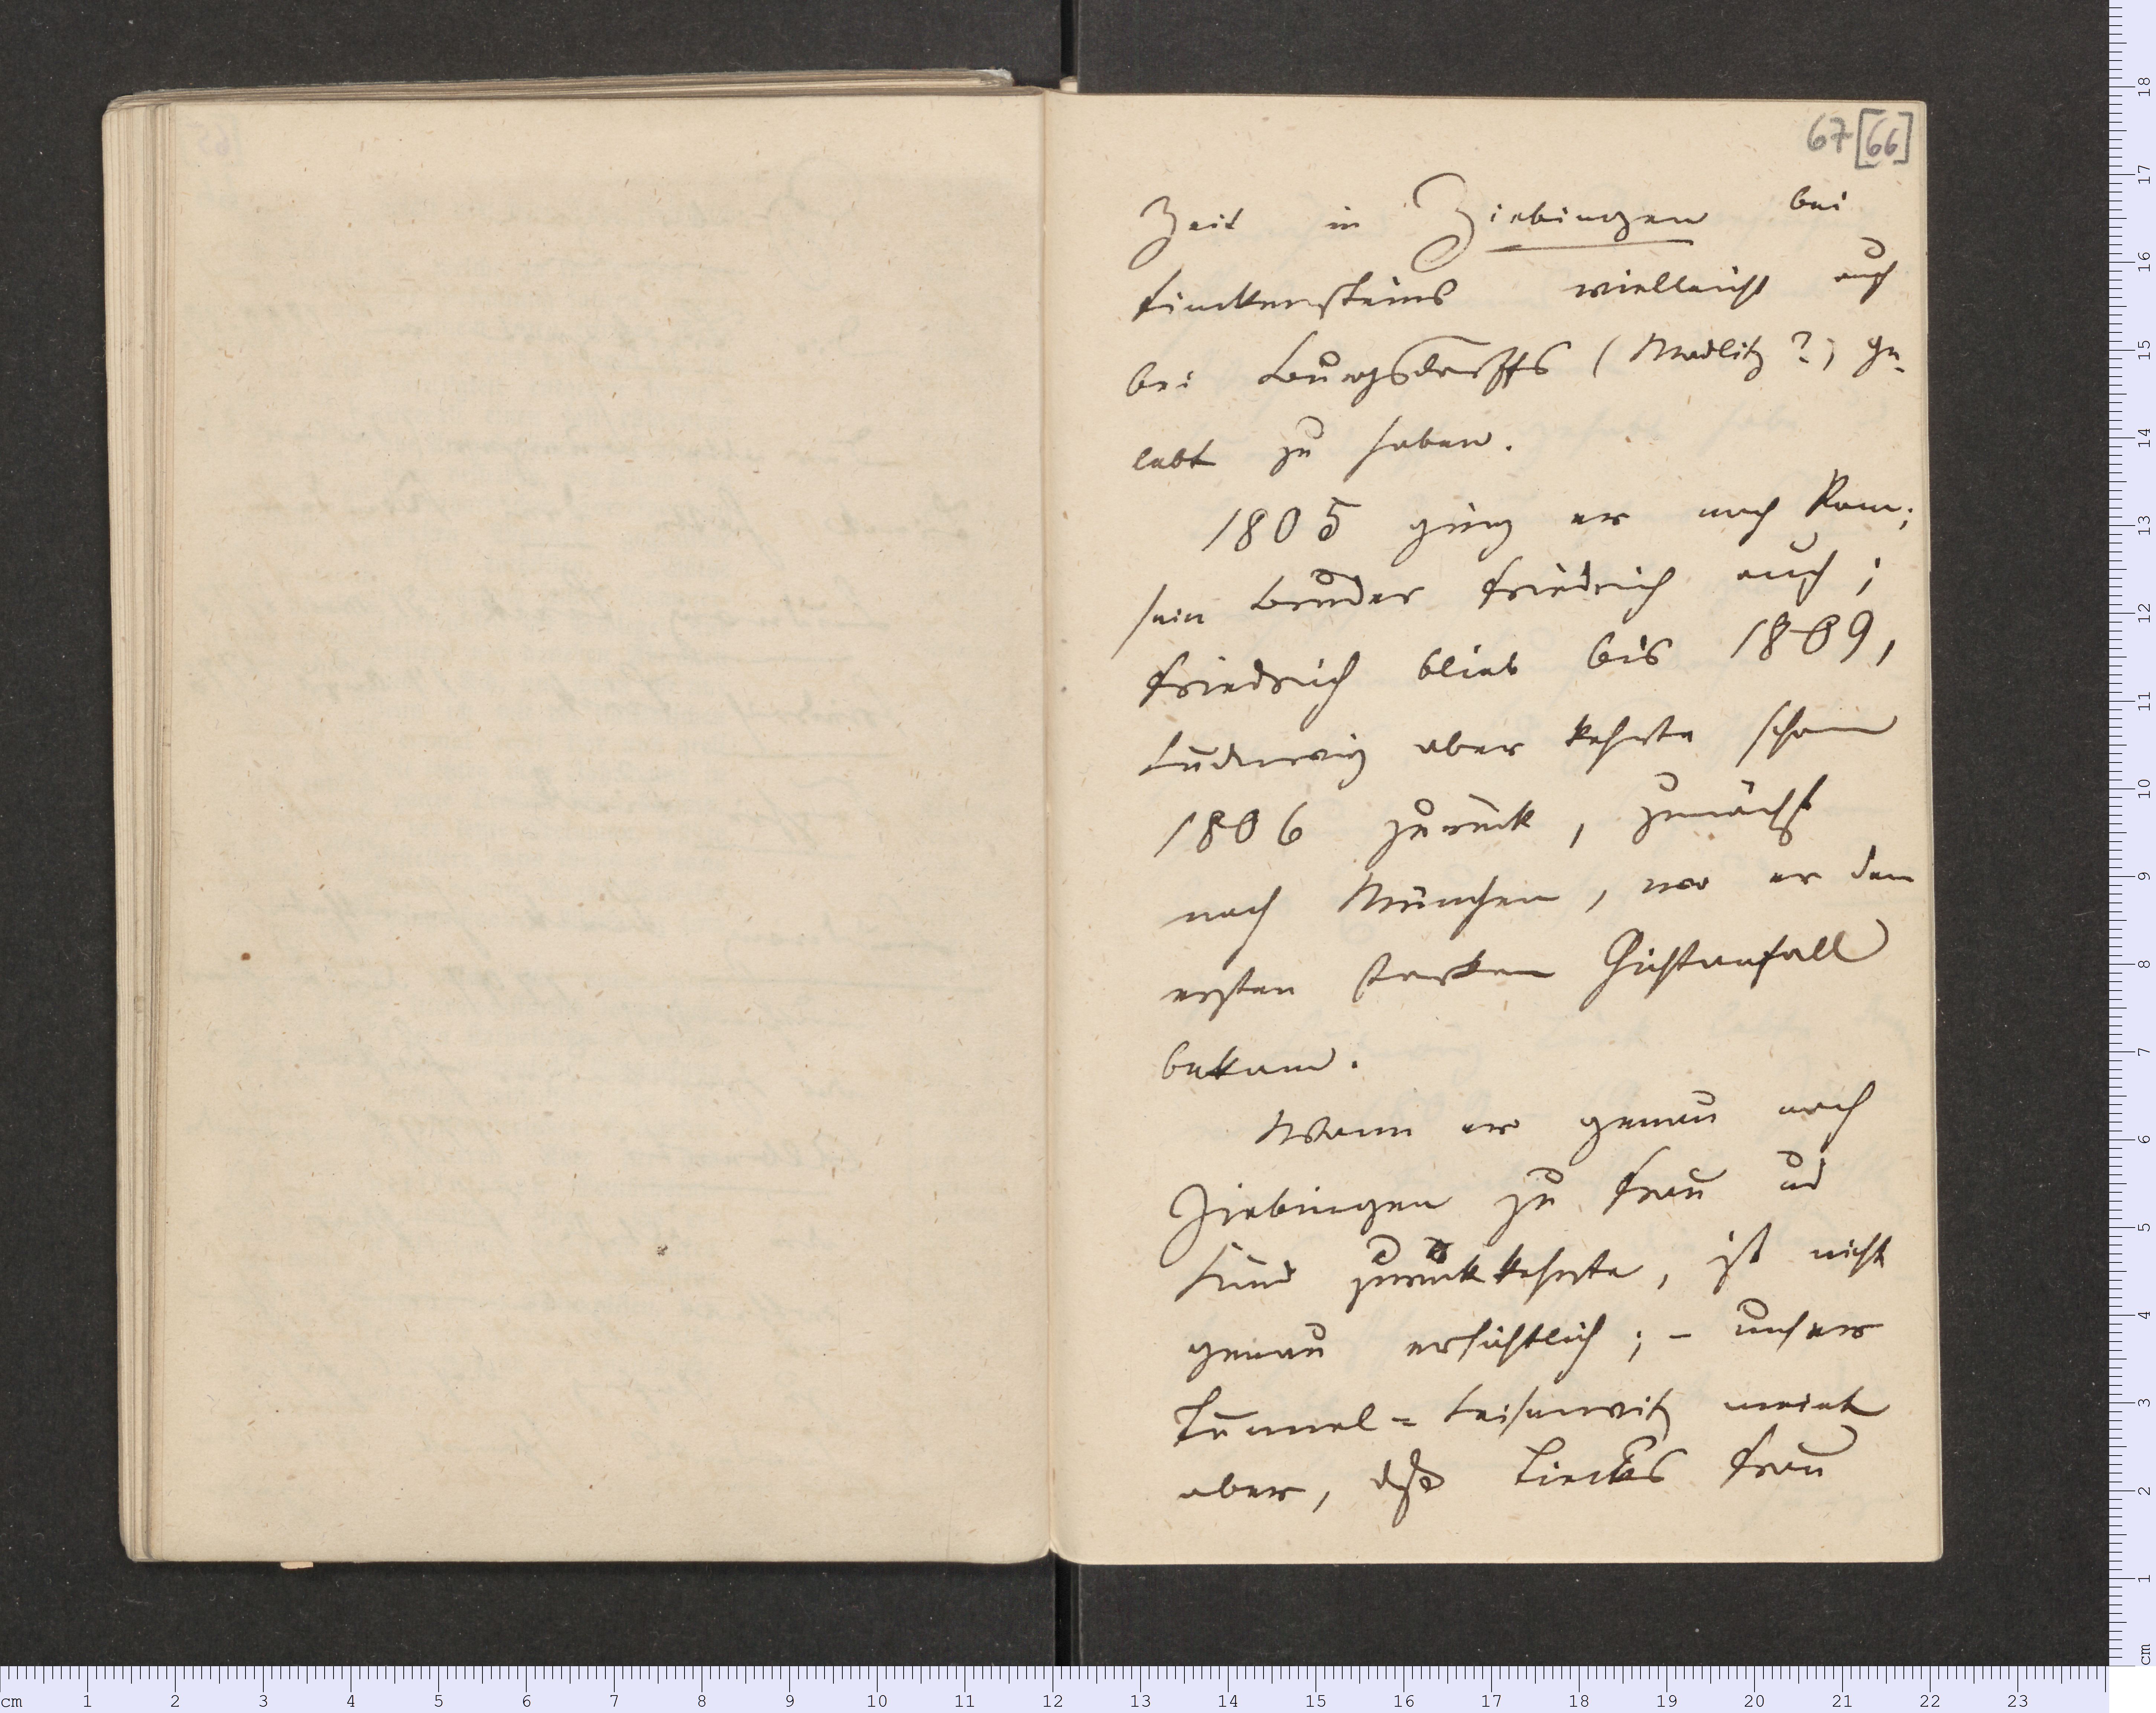 67[66]
Zeit in Ziebingen bei
Finckensteins vielleicht auch
bei Burgsdorffs (Madlitz?) ge-
lebt zu haben.
1805 ging er nach Rom;
sein Bruder Friedrich auch;
Friedrich blieb bis 1809,
Ludewig aber kehrte schon
1806 zurück, zunächst
nach München, wo er den
ersten starken Gichtanfall
bekam.
Wann er genau nach
Ziebingen zu Frau und
Kind zurückkehrte, ist nicht
genau ersichtlich; – unser
Tunnel-Leisewitz meint
aber, dß Tiecks Frau